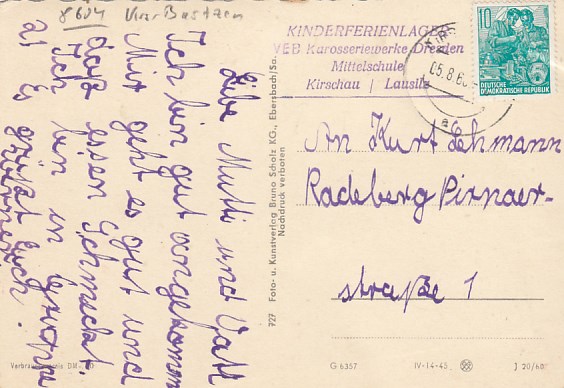 8604 Kr. Bautzen
KINDERFERIENLAGER
VEB Karosseriewerke Dresden
Mittelschule
Kirschau / Lausitz
05.8.6
10
DEUTSCHE
DEMOKRATISCHE REPUBLIK
Liebe Mutti und Vati
Ich bin gut angekomm
Mir geht es gut und
daß essen schmeckt.
Ich bin in
Es grüßt Euch
727 Foto- u. Kunstverlag Bruno Scholz KG., Ebersbach/Sa.
Nachdruck verboten
An Kurt Lehmann
Radeberg Pirnaer-
straße 1
G 6357
IV-14-45
J 20/60